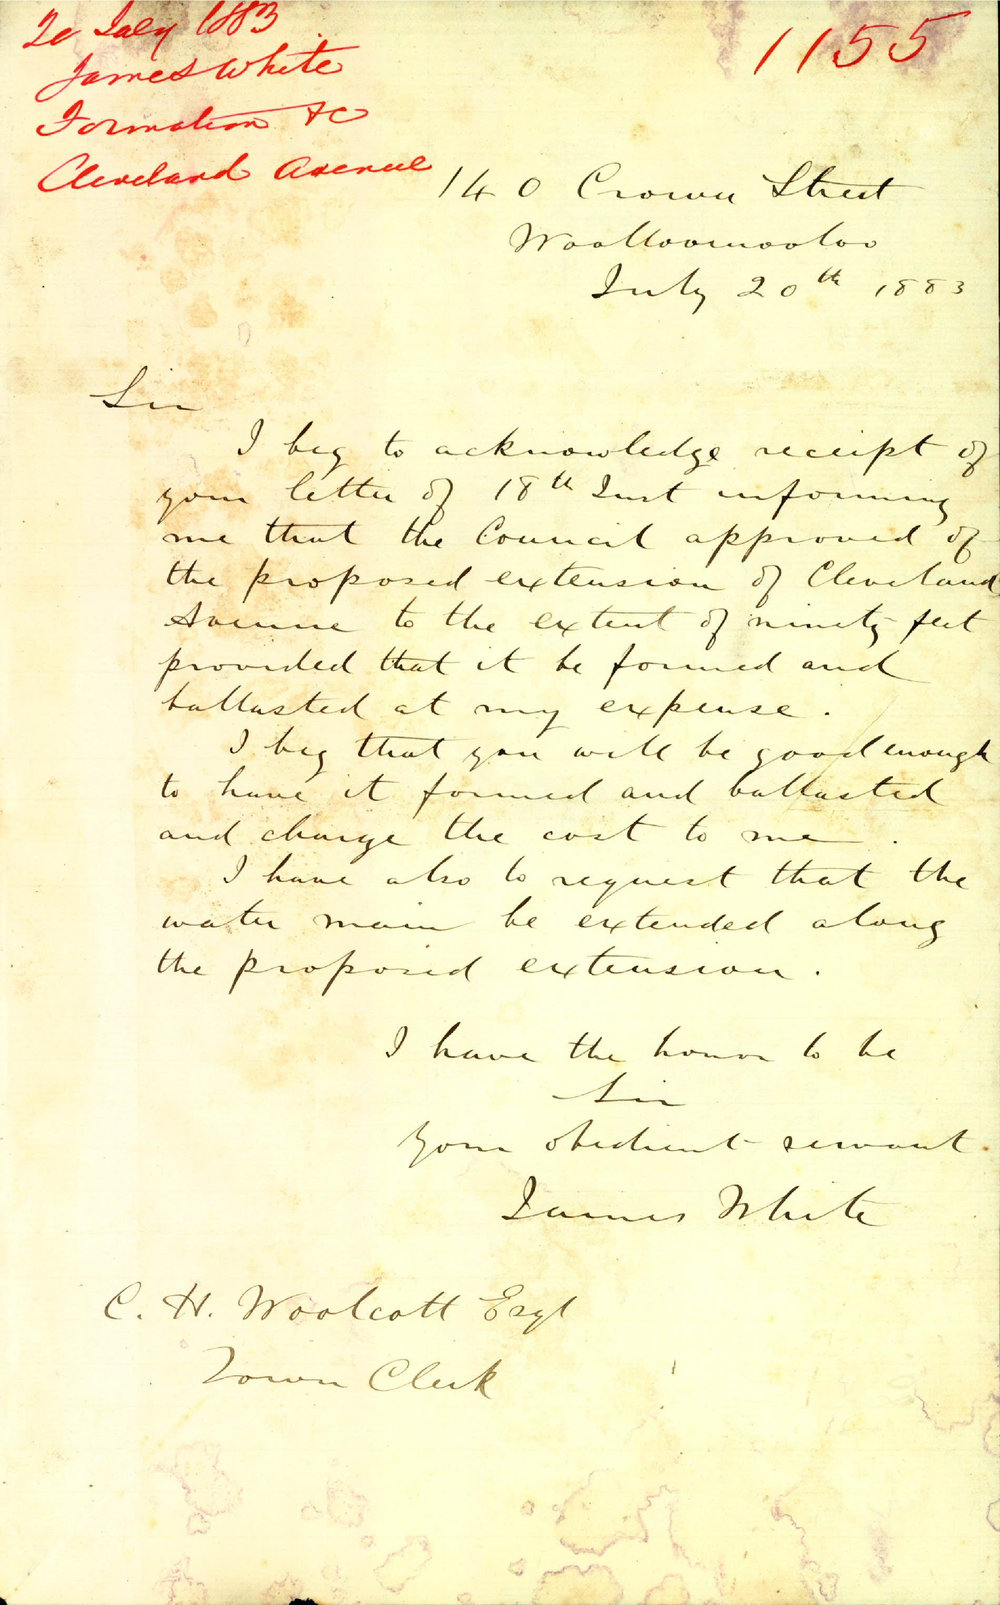 20 July 1883
James White
Formation &c
Cleveland Avenue
1155
140 Crown Street
Woolloomooloo
July 20th 1883
Sir
I beg to acknowledge receipt of
your letter of 18th Inst informing
me that the Council approved of
the proposed extension of Cleveland
Avenue to the extent of ninety feet
provided that it be formed and
ballasted at my expense.
I beg that you will be good enough
to have it formed and ballasted
and charge the cost to me.
I have also to request that the
water main be extended along
the proposed extension.
I have the honor to be
Sir
Your obedient servant.
James White
C. H. Woolcott Esqr
Town Clerk